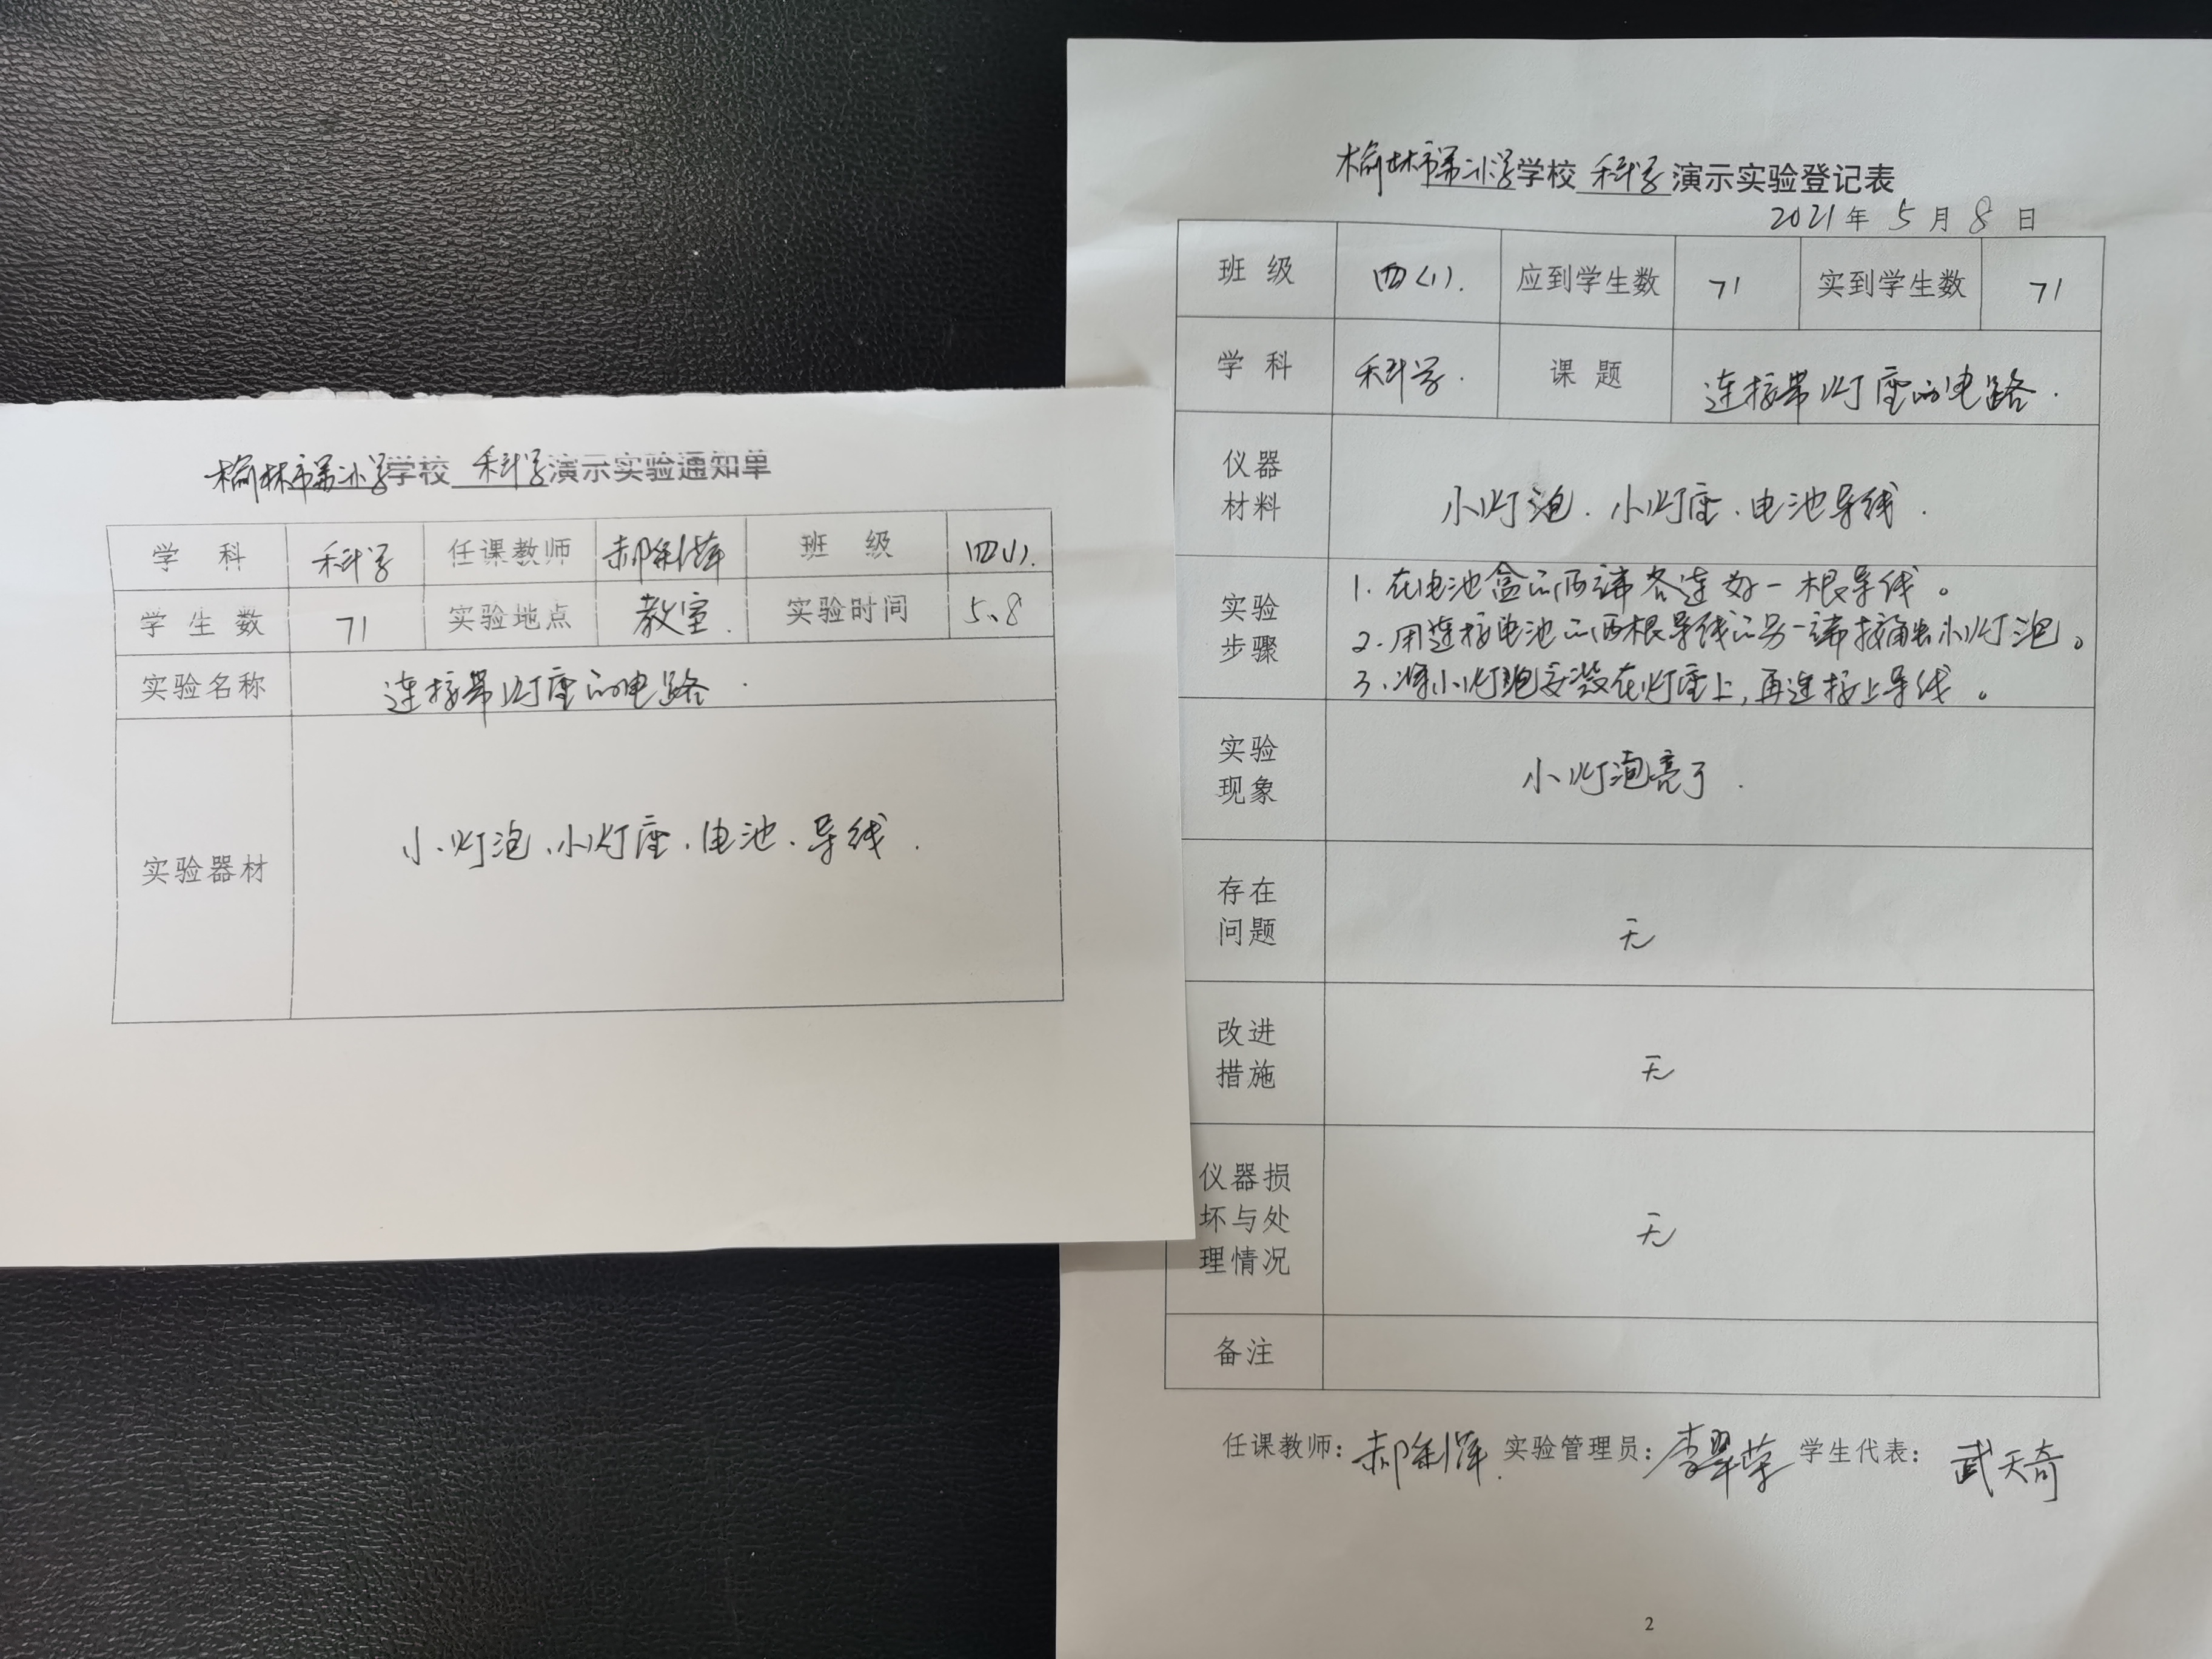 榆林市第小学学校 科学 演示实验通知单
学 科 科学 任课教师 郝利萍 班 级 四(1).
学 生 数 71 实验地点 教室. 实验时间 5.8
实验名称 连接带灯座的电路.
实验器材 小灯泡、小灯座、电池、导线.
榆林市第小学学校 科学 演示实验登记表
2021年 5 月 8 日
班 级 四(1). 应到学生数 71 实到学生数 71
学 科 科学. 课 题 连接带灯座的电路.
仪器
材料
小灯泡、小灯座、电池导线.
实验
步骤
1.在电池盒的两端各连好一根导线。
2.用连接电池的两根导线的另一端接触小灯泡。
3.将小灯泡安装在灯座上,再连接上导线。
实验
现象
小灯泡亮了.
存在
问题
无
改进
措施
无
仪器损
坏与处
理情况
无
备注
任课教师:郝利萍. 实验管理员:李翠荣 学生代表: 武天奇
2